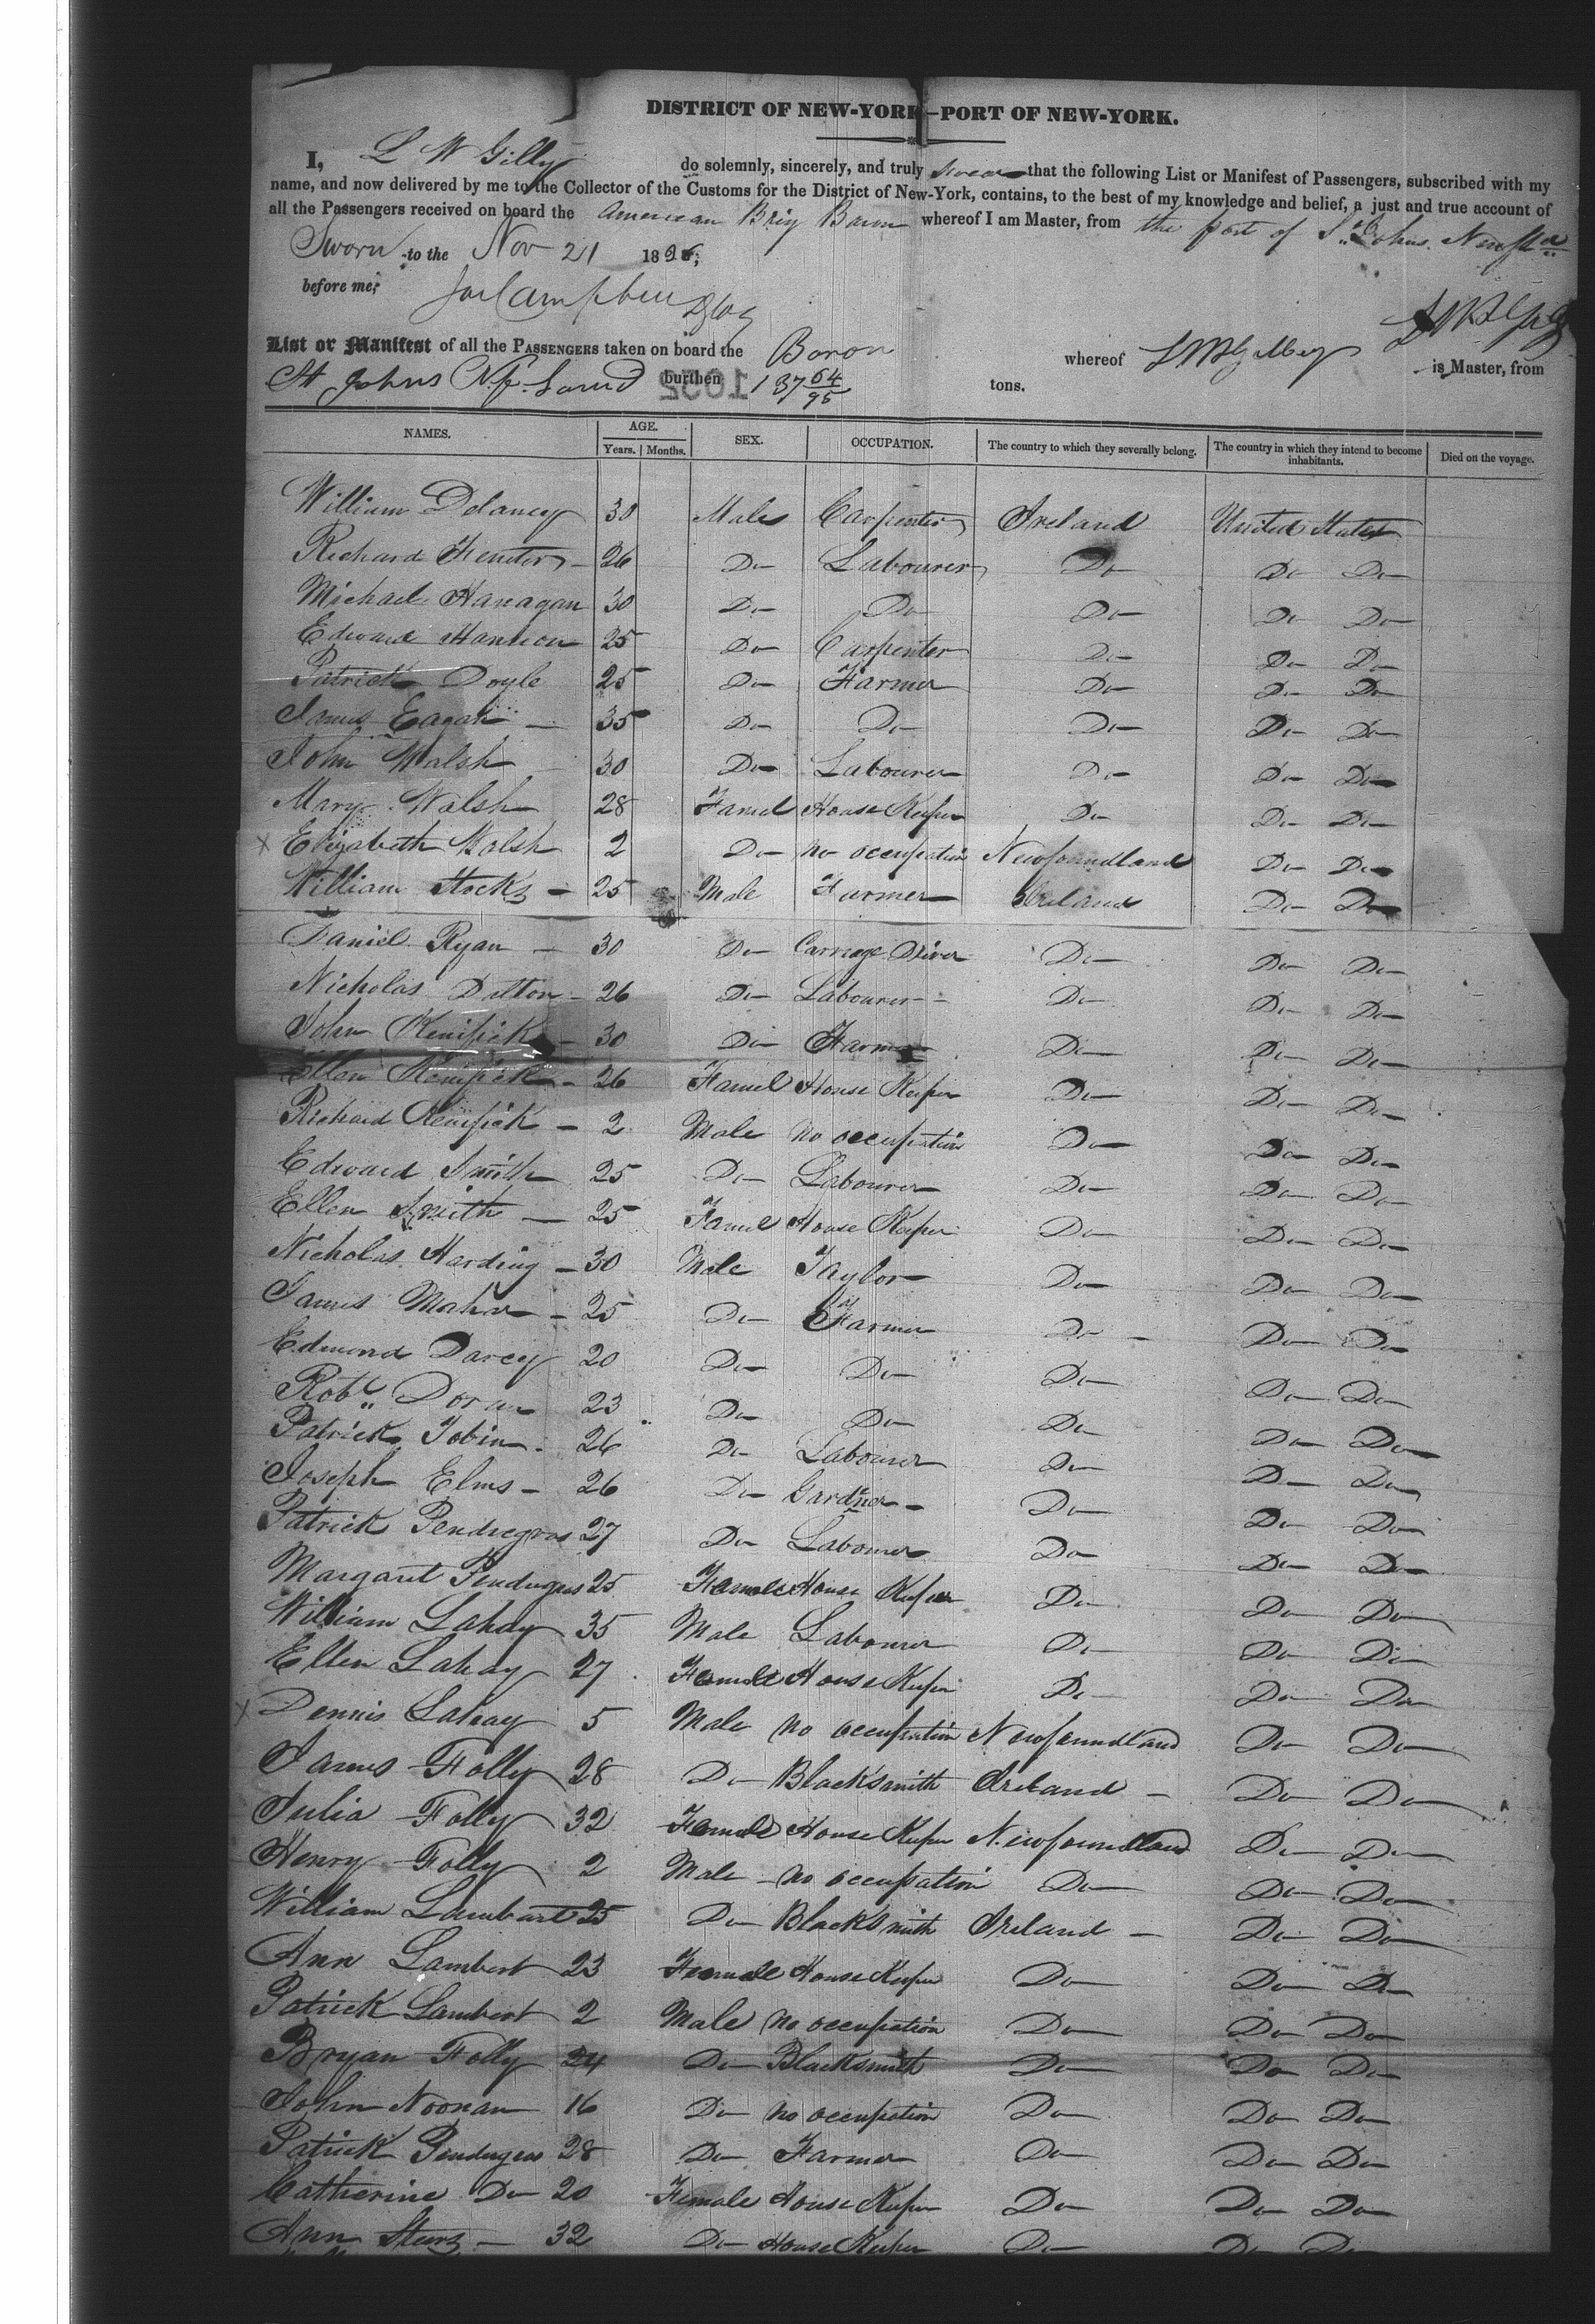 DISTRICT OF NEW-YORK—PORT OF NEW-YORK.
I, L W Gilly do solemnly, sincerely, and truly swear that the following List or Manifest of Passengers, subscribed with my
name, and now delivered by me to the Collector of the Customs for the District of New-York, contains, to the best of my knowledge and belief, a just and true account of
all the Passengers received on board the American Brig Baron whereof I am Master, from the port of St Johns. Newfld
Sworn to the Nov 21 1826,
before me, Campbell
List or Manifest of all the PASSENGERS taken on board the Baron whereof is Master, from
St Johns N.f. Land burthen 137 64/95 tons.
NAMES. AGE. SEX. OCCUPATION. The country to which they severally belong. The country in which they intend to become inhabitants. Died on the voyage.
Years. Months.
William Delaney 30 Male Carpenter Ireland United States
Richard 26 Do Labourer Do Do Do
Michael Hanagan 30 Do Do Do Do Do
Edward Hanlon 25 Do Carpenter Do Do Do
Patrick Doyle 25 Do Farmer Do Do Do
James Eagan 35 Do Do Do Do Do
John Walsh 30 Do Labourer Do Do Do
Mary Walsh 28 Famel House Keeper Do Do Do
x Elizabeth Walsh 2 Do no occupation Newfoundland Do Do
William Stocks 25 Male Farmer Ireland Do Do
Daniel Ryan 30 Do Carriage Driver Do Do Do
Nicholas Dutton 26 Do Labourer Do Do Do
John Kenifick 30 Do Farmer Do Do Do
Ellen Kenifick 26 Famel House Keeper Do Do Do
Richard Kenifick 2 Male no occupation Do Do Do
Edward Smith 25 Do Labourer Do Do Do
Ellen Smith 25 Famel House Keeper Do Do Do
Nicholas Harding 30 Male Taylor Do Do Do
James Mahar 25 Do Farmer Do Do Do
Edmond Darcy 20 Do Do Do Do Do
Robt Doran 23 Do Do Do Do Do
Patrick Tobin 26 Do Labourer Do Do Do
Joseph Elms 26 Do Gardner Do Do Do
Patrick Pendregras 27 Do Labourer Do Do Do
Margaret Pendugras 25 Female House Keeper Do Do Do
William Lahay 35 Male Labourer Do Do Do
Ellen Lahay 27 Female House Keeper Do Do Do
x Dennis Lahay 5 Male no occupation Newfoundland Do Do
James Folly 28 Do Blacksmith Ireland Do Do
Julia Folly 32 Female House Keeper Newfoundland Do Do
Henry Folly 2 Male no occupation Do Do Do
William Lambart 25 Do Blacksmith Ireland Do Do
Ann Lambert 23 Female House Keeper Do Do Do
Patrick Lambert 2 Male no occupation Do Do Do
Bryan Folly 24 Do Blacksmith Do Do Do
John Noonan 16 Do no occupation Do Do Do
Patrick Pendugras 28 Do Farmer Do Do Do
Catherine Do 20 Female House Keeper Do Do Do
Ann 32 Do House Keeper Do Do Do